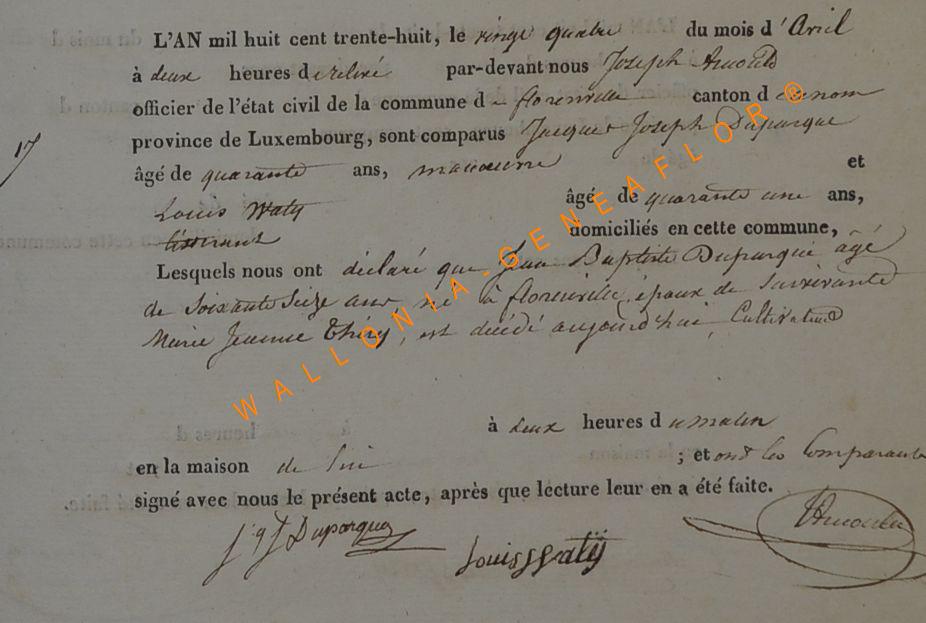 L'AN mil huit cent trente-huit, le vingt quatre du mois d'Avril
à deux heures de relevé par-devant nous Joseph Arnould
officier de l'état civil de la commune de florenville canton d
province de Luxembourg, sont comparus Jacques Joseph Duparque
17
âgé de quarante ans, manœuvre et
Louis Waty âgé de quarante une ans,
tisserant domiciliés en cette commune,
Lesquels nous ont déclaré que Jean Baptiste Duparque âgé
de Soixante Seize ans né à florenville, epoux de Survivante
Marie Jeanne Thiry, est décédé aujourd'hui, Cultivateur
à deux heures du matin
en la maison de lui ; et ont les Comparants
signé avec nous le présent acte, après que lecture leur en a été faite.
j q J Duparque Louis J Waty Arnould
WALLONIA-GENEAFLOR®